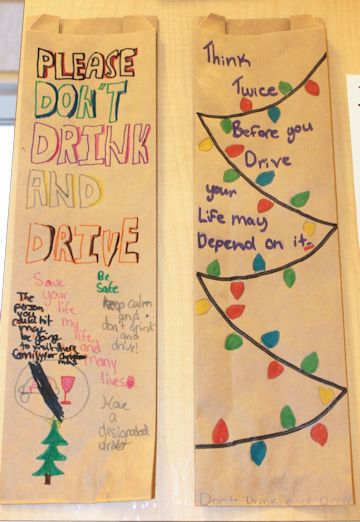 PLEASE
DON'T
DRINK
AND
DRIVE
Save
your
life
my
life,
and
many
lives.
Be
Safe
The
person
you
could hit
may
be going
to visit there
family for christ
mas
keep calm
and
don't drink
and
drive!
Have
a
designated
driver
Think
Twice
Before you
Drive
your
Life may
Depend on it.
Don't Drink and Drive